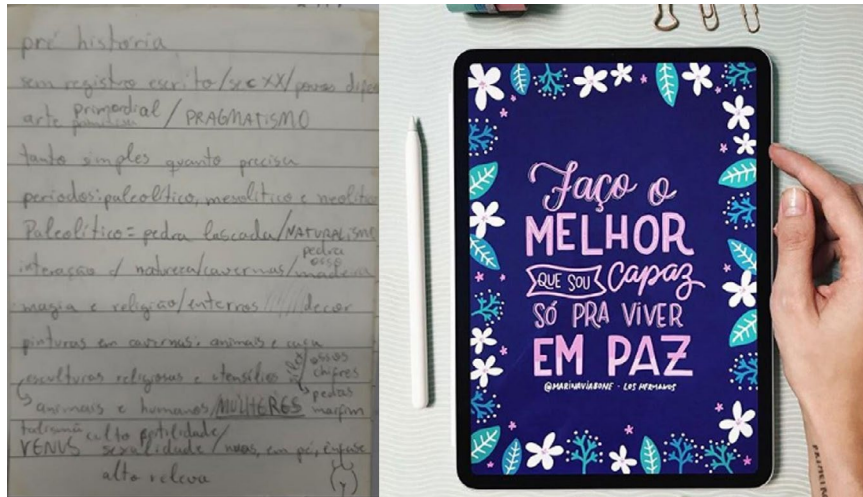 pré história
sem registro escrito/sec XX/povos
arte primordial / PRAGMATISMO
tanto simples quanto precisa
periodos: paleolítico, mesolítico e neolítico
Paleolítico = pedra lascada/NATURALISMO
interação c/ natureza/cavernas/pedra osso madeira
magia e religião/enterros decor
pinturas em cavernas: animais e caça
esculturas religiosas e utensílios ossos chifres
animais e humanos/MULHERES pedras marfim
talismã
VENUS culto fertilidade/
sexualidade/nuas, em pé, ênfase
alto relevo
Faço o
MELHOR
QUE SOU capaz
SÓ PRA VIVER
EM PAZ
@MARINAVIABONE - LOS HERMANOS